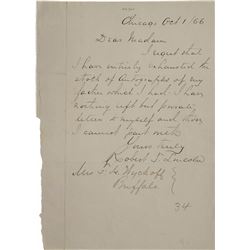 Chicago Oct 1/66
Dear Madam
I regret that
I have entirely exhausted the
stock of Autographs of my
father which I had. I have
nothing left but private
letters to myself and those
I cannot part with
Yours truly
Robert T. Lincoln
Mrs F. H. Wyckoff
Buffalo
34